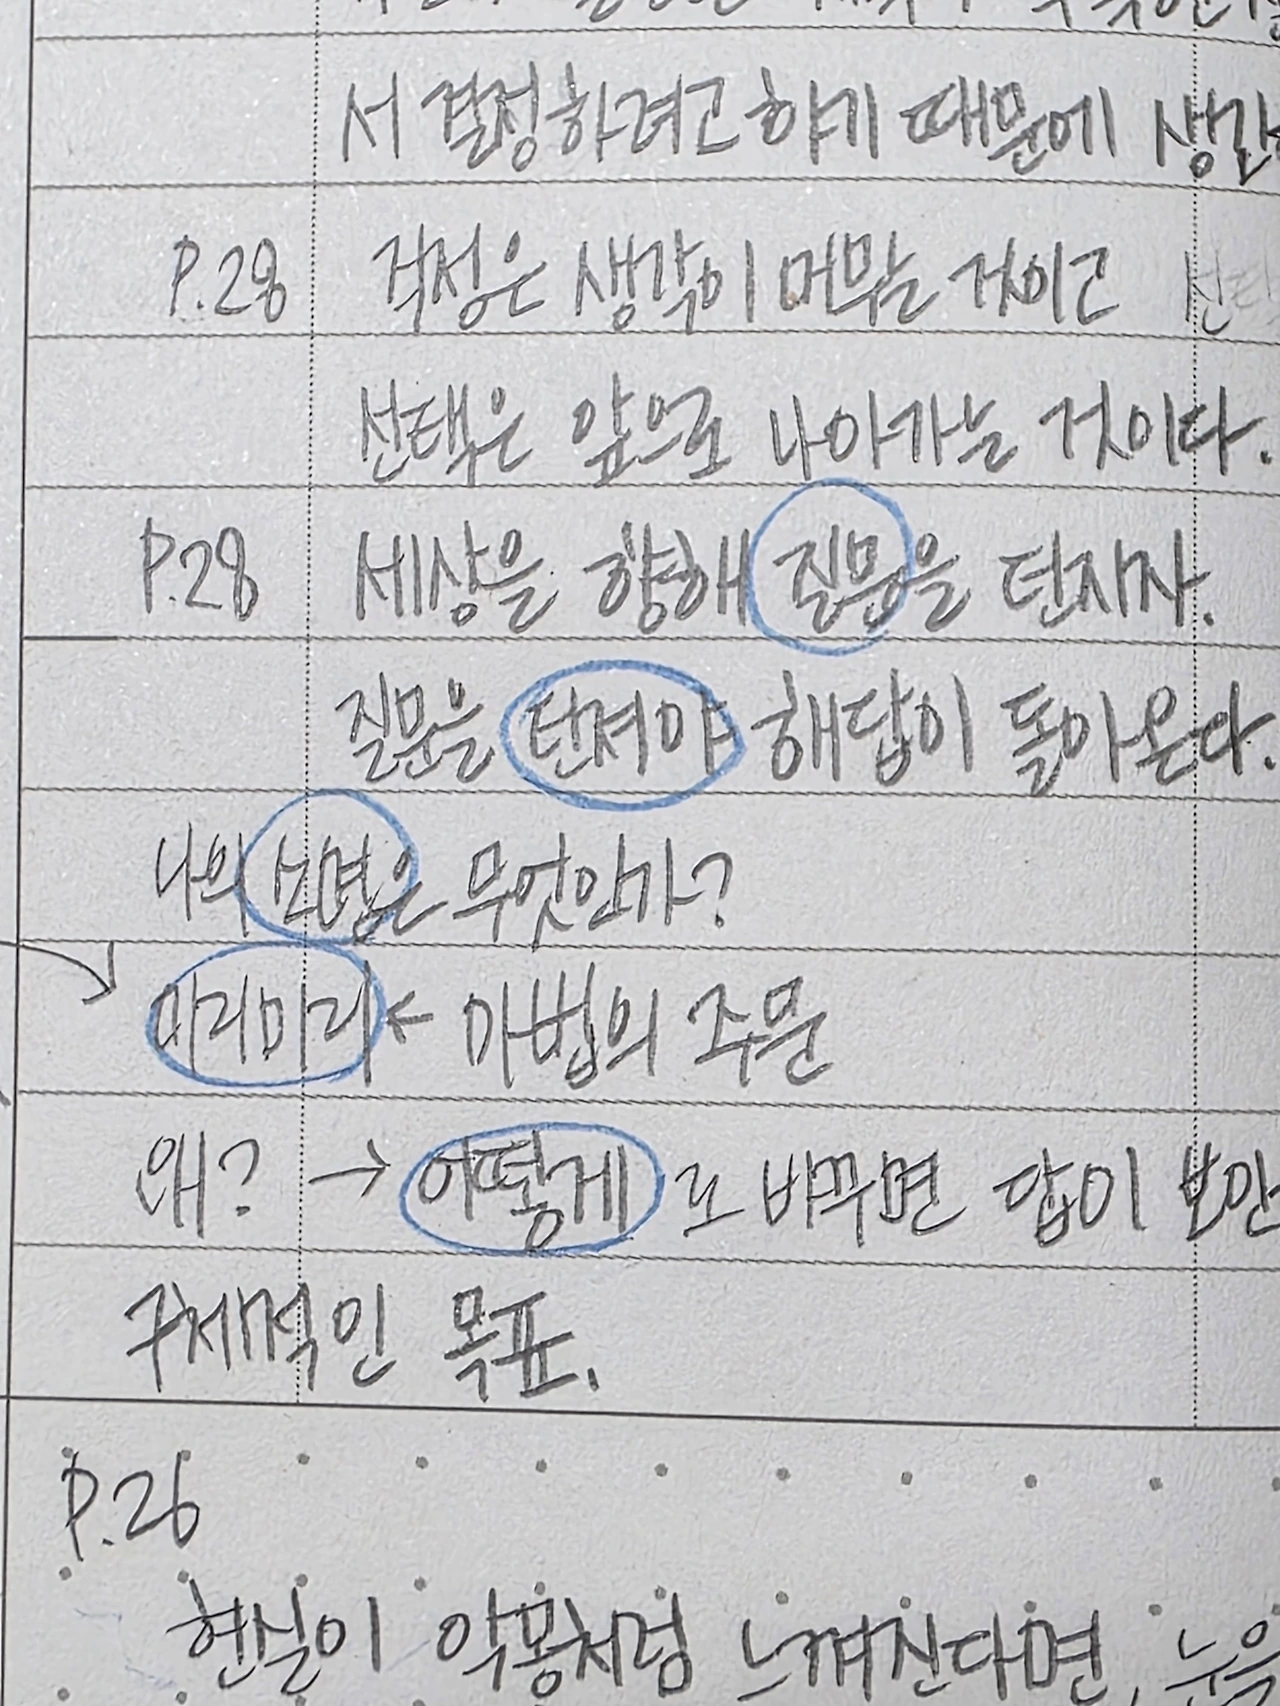 서 결정하려고 하기 때문에 생각
P.28 걱정은 생각이 머무는 것이고
선택은 앞으로 나아가는 것이다.
P.28 세상을 향해 질문을 던지자.
질문을 던져야 해답이 돌아온다.
나의 소명은 무엇인가?
미리미리 ← 마법의 주문
왜? → 어떻게 로 바꾸면 답이 보인
구체적인 목표.
P.26
현실이 악몽처럼 느껴진다면,